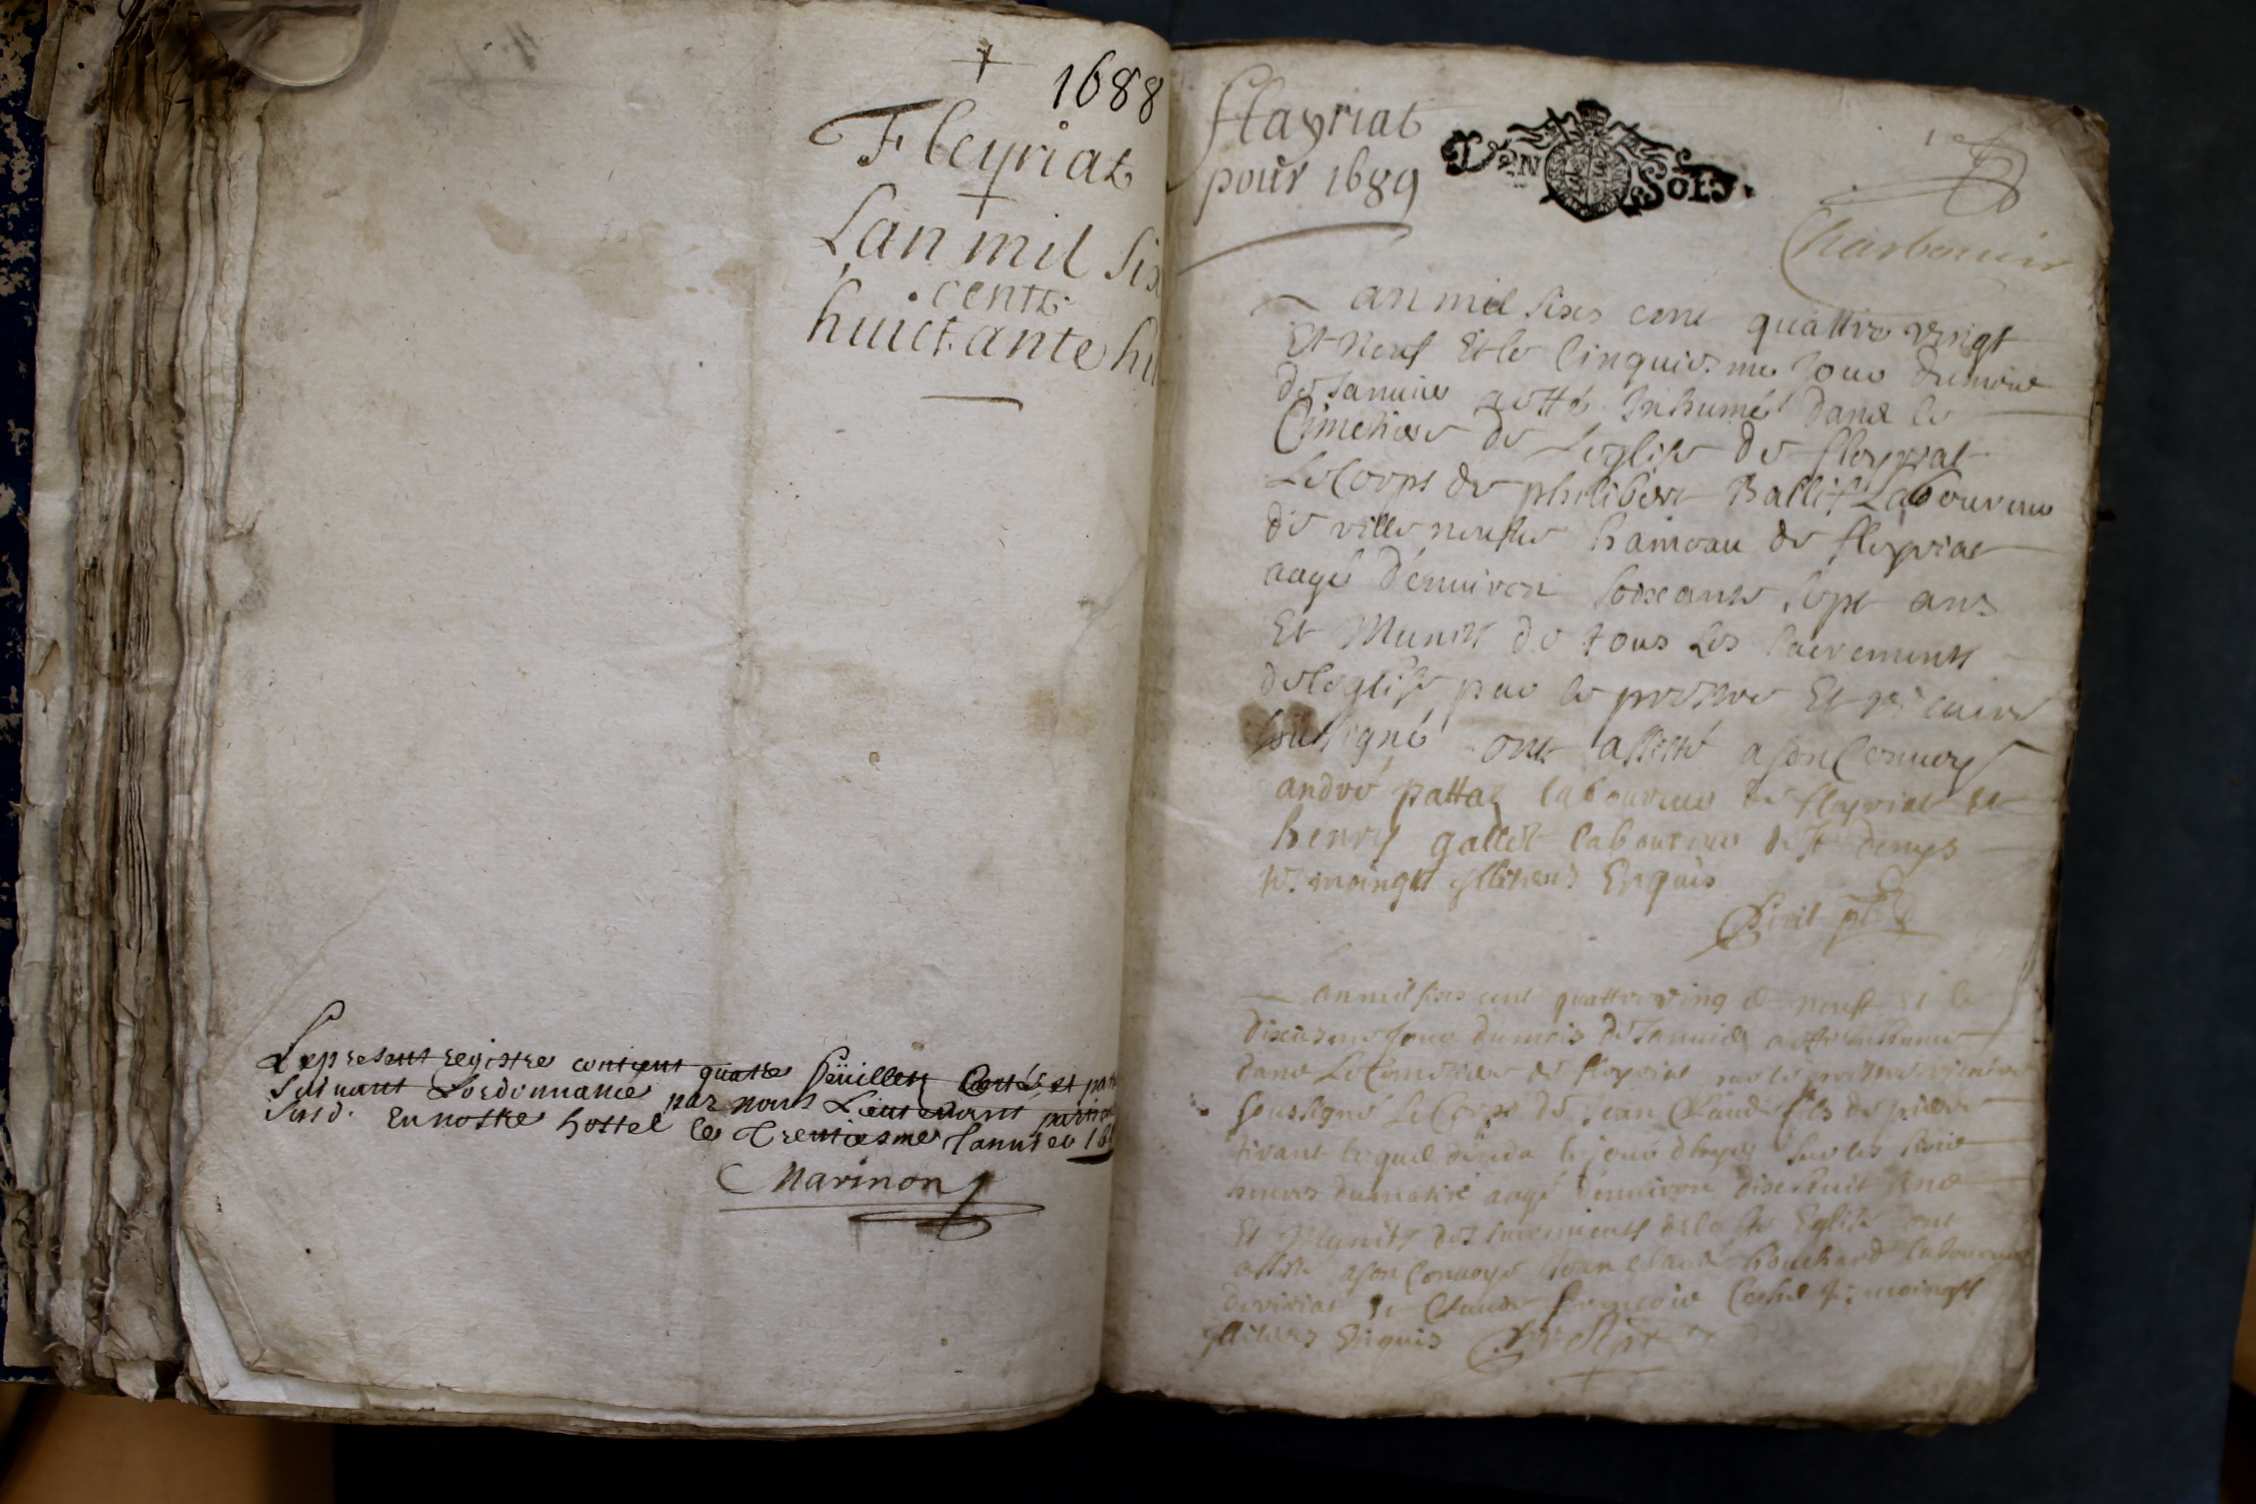 1688
Fleyriat
Lan mil six
cents
huictante hu
Le present registre contient quatre feüilletz Cottés et par
suivant Lordonnance par nous Lieutenant partic
susd. En nostre hostel le Trentiesme Januier 16
Marinon
flayriat
pour 1689
Vn Sol
Charbonnier
an mil sixs cent quattre vingt
Et neuf Et le Cinquiesme Jour du mois
de Januier a esté Inhumé dans le
Cimetiere de Leglise de fleyriat
Le Corps de philibert Ballif Laboureur
de ville neufve hameau de fleyriat
aagé d'enuiron soixante sept ans
Et Munit de tous Les sacrements
de leglise par le prestre Et vicaire
soussigné ont assisté a son Conuoy
andré pattaz laboureur de fleyriat et
henry gallet laboureur de st denys
tesmoingts illiteres Enquis
ptre
an mil sixs cent quattre ving et neuf et le
dixiesme Jour du mois de Januier a esté inhumé
dans Le Cimetiere de fleyriat par le prestre vicaire
soussigné Le Corps de Jean Claude fils de pierre
tirant lequel
aagé d'enuiron dixhuit ans
Et Munits des sacrements de la ste Eglise ont
assisté a son Conuoys Jean Claude bouchard laboureur
de viriat et Claude francois tesmoingts
illiteres Enquis